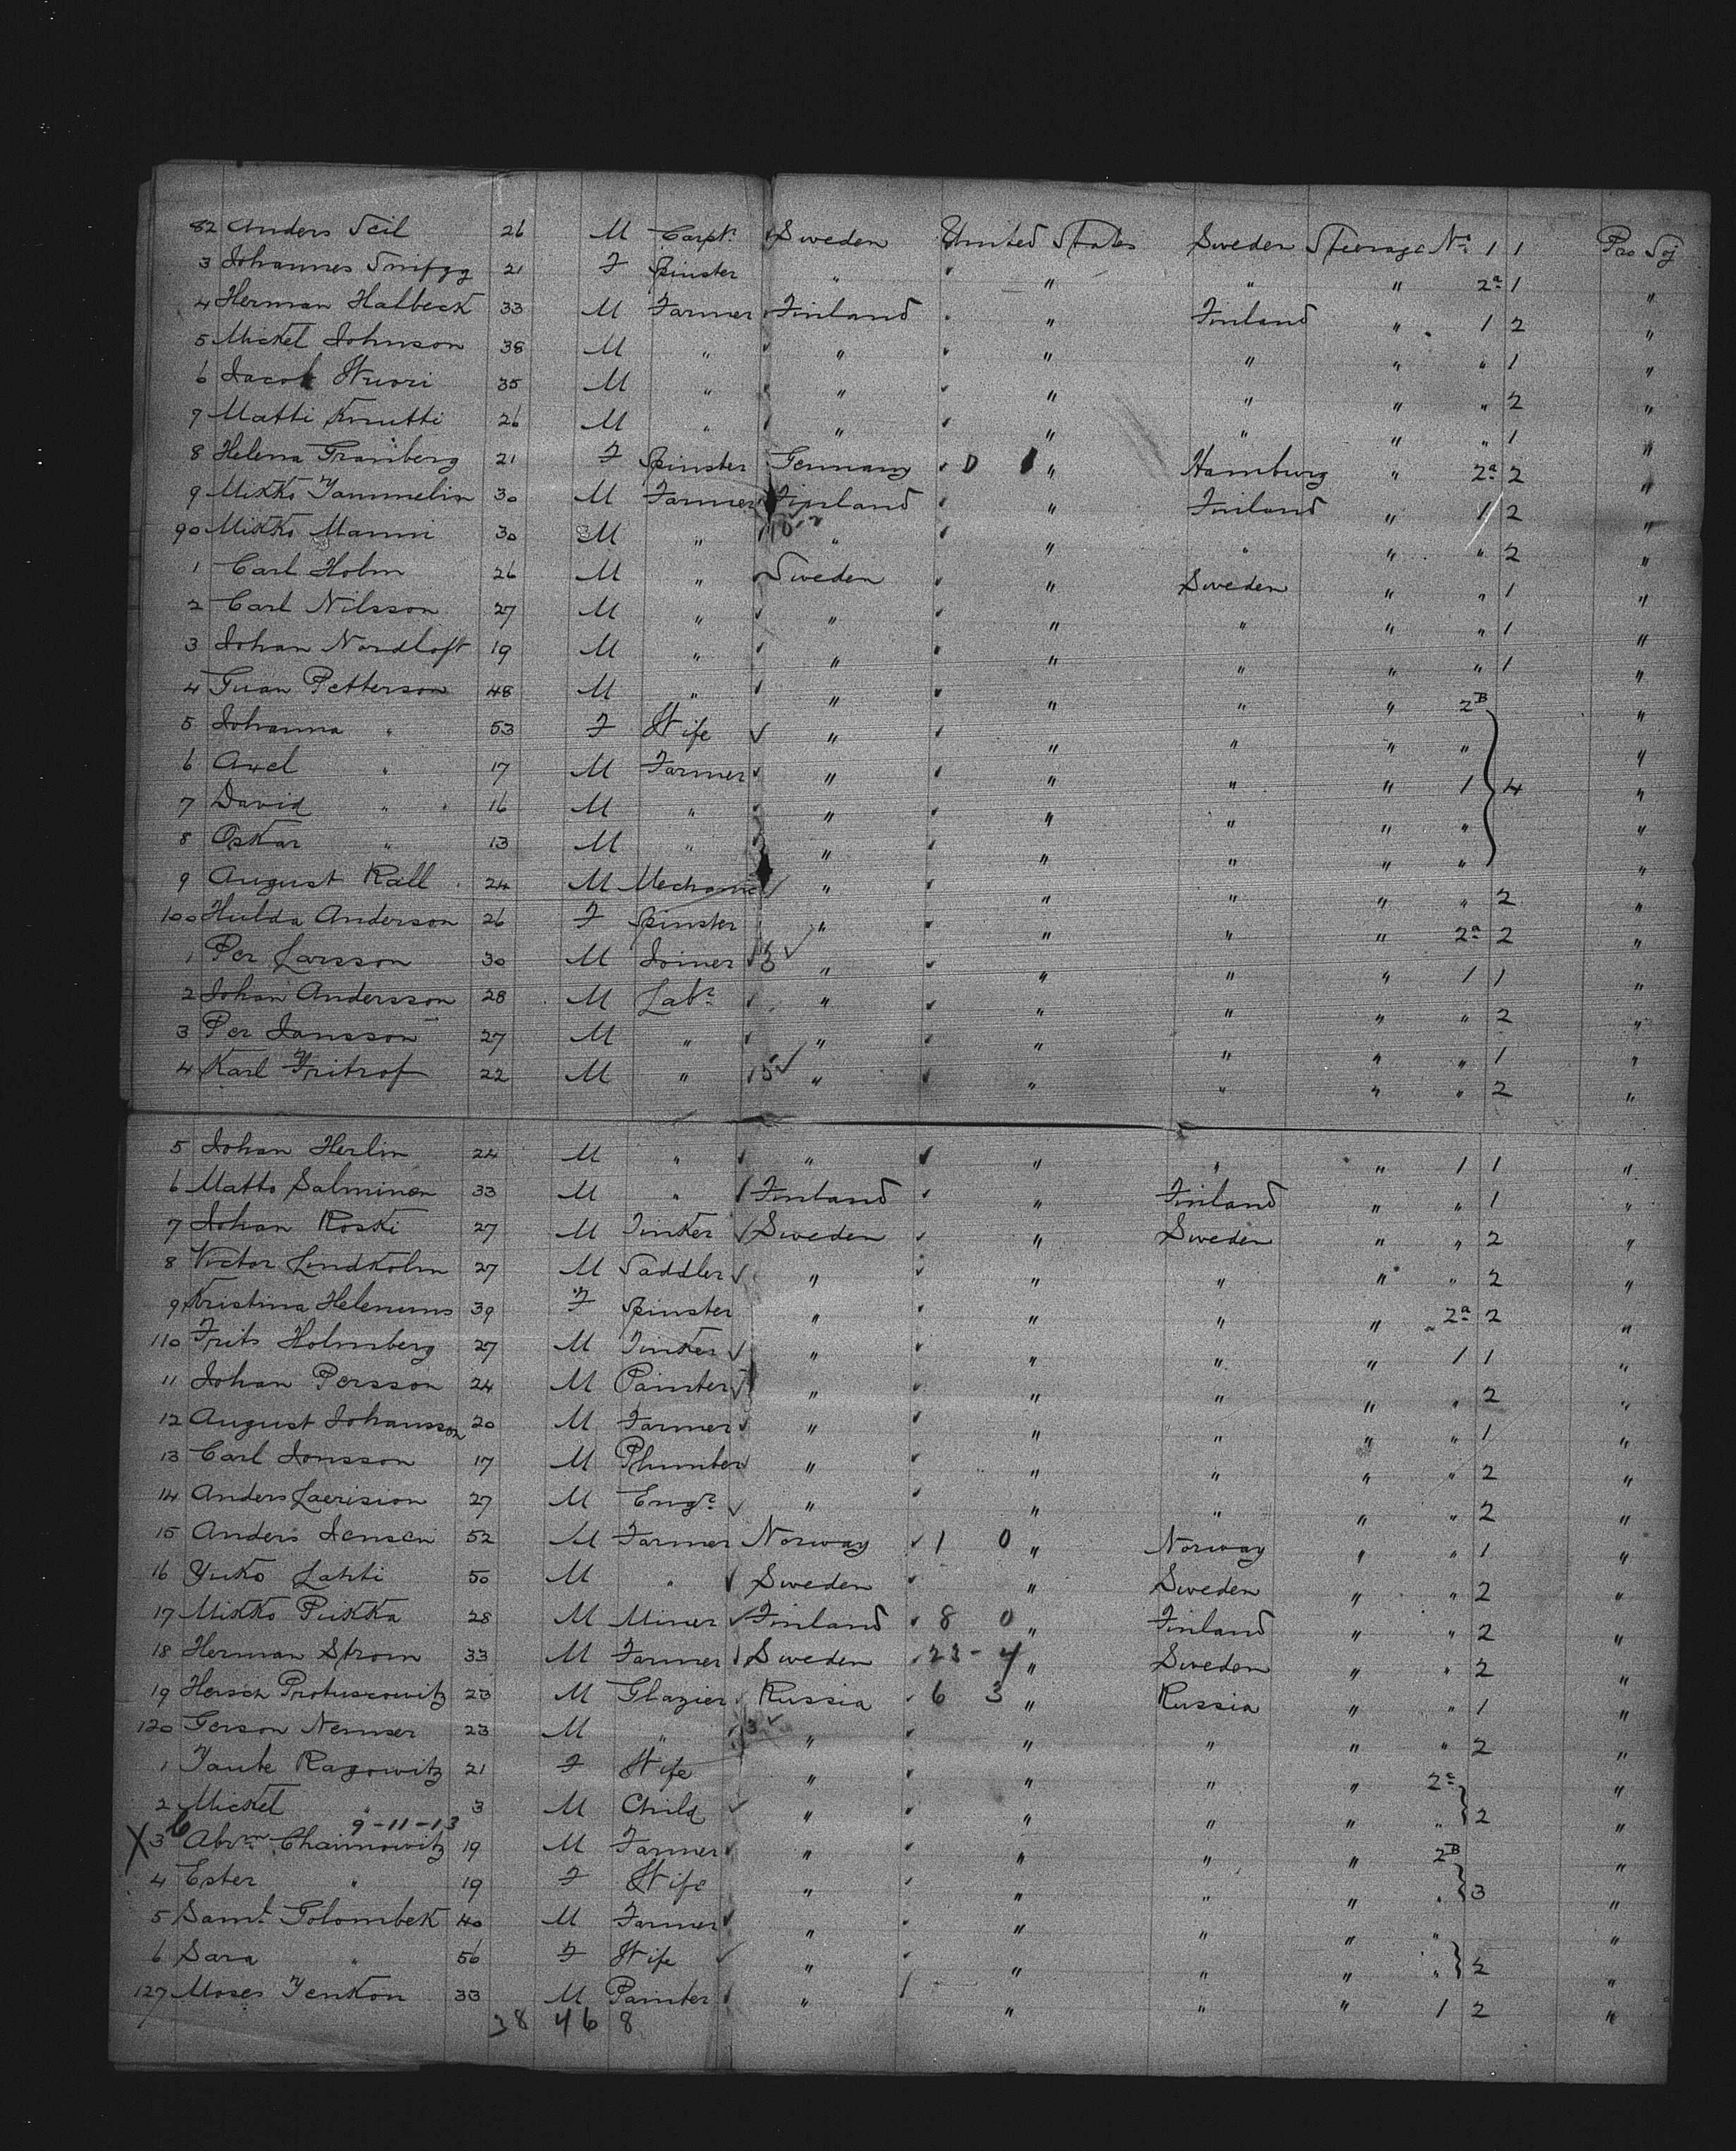 82 Anders Seil 26 M Carptr Sweden United States Sweden Steerage No 1 1 Pro Soj
3 Johannes 21 F Spinster " " " " 2a 1 "
4 Herman Halbeck 33 M Farmer Finland " Finland " 1 2 "
5 Mickel Johnson 38 M " " " " " " 1 "
6 Jacob Wuori 35 M " " " " " " 2 "
7 Matti Knutti 26 M " " " " " " 1 "
8 Helena Tranberg 21 F Spinster Germany D 1 " Hamburg " 2a 2 "
9 Mikko Tammelin 30 M Farmer Finland " Finland " 1 2 "
90 Mikko Manni 30 M " 10 " " " " " 2 "
1 Carl Holm 26 M " Sweden " Sweden " " 1 "
2 Carl Nilsson 27 M " " " " " " 1 "
3 Johan Nordloft 19 M " " " " " " 1 "
4 Petterson 48 M " " " " " 2B "
5 Johanna " 53 F Wife " " " " " "
6 Axel " 17 M Farmer " " " " 1 4 "
7 David " 16 M " " " " " " "
8 Oskar " 13 M " " " " " " "
9 August Rall 24 M Mechanic " " " " " 2 "
100 Hulda Anderson 26 F Spinster " " " " 2a 2 "
1 Per Larsson 30 M Joiner 3 " " " " 1 1 "
2 Johan Andersson 28 M Labr " " " " " 2 "
3 Per Jansson 27 M " " " " " " 1 "
4 Karl Fritrof 22 M " 5 " " " " " 2 "
5 Johan Herlin 24 M " " " " " 1 1 "
6 Matts Salminen 33 M " Finland " Finland " " 1 "
7 Johan Koski 27 M Tinker Sweden " Sweden " " 2 "
8 Victor Lindholm 27 M Saddler " " " " " 2 "
9 Kristina Helenums 39 F Spinster " " " " 2a 2 "
110 Frits Holmberg 27 M Tinker " " " " 1 1 "
11 Johan Persson 24 M Painter " " " " " 2 "
12 August Johansson 20 M Farmer " " " " " 1 "
13 Carl Jonsson 17 M Plumber " " " " " 2 "
14 Anders Laerision 27 M Engr " " " " " 2 "
15 Anders Jensen 52 M Farmer Norway 1 0 " Norway " " 1 "
16 Yuko Lahti 50 M " Sweden " Sweden " " 2 "
17 Mikko Pukka 28 M Miner Finland 8 0 " Finland " " 2 "
18 Herman Strom 33 M Farmer Sweden 23 - 4 " Sweden " " 2 "
19 Hersch Protuscowitz 23 M Glazier Russia 6 3 " Russia " " 1 "
120 Gerson Nemser 23 M " 3 " " " " " 2 "
1 Taube Ragowitz 21 F Wife " " " " 2c "
2 Mickel " 3 M Child " " " " " 2 "
6 9-11-13
X 3 Abrm Chaimowitz 19 M Farmer " " " " 2B "
4 Ester " 19 F Wife " " " " " 3 "
5 Saml Golombek 40 M Farmer " " " " " "
6 Sara " 56 F Wife " " " " " 2 "
127 Moses Jenkon 33 M Painter " " " " 1 2 "
38 46 8